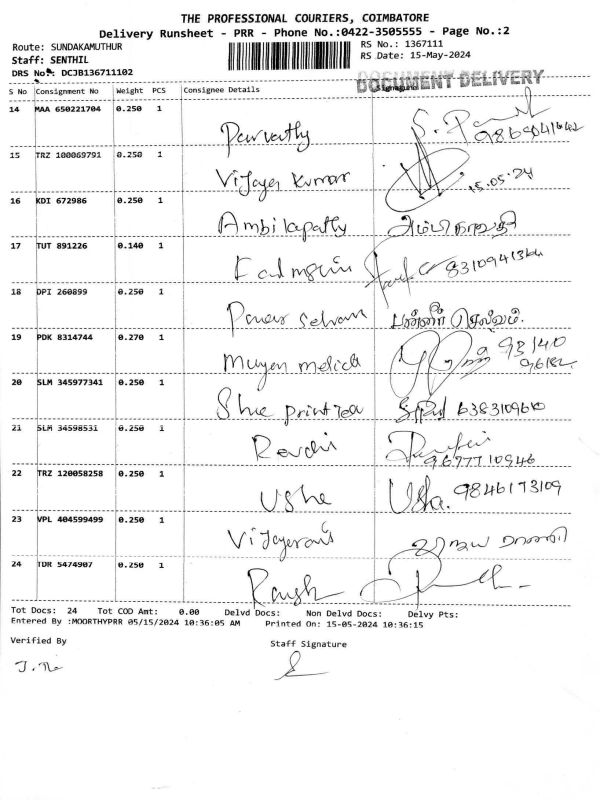 THE PROFESSIONAL COURIERS, COIMBATORE
Delivery Runsheet - PRR - Phone No.:0422-3505555 - Page No.:2
Route: SUNDAKAMUTHUR RS No.: 1367111
Staff: SENTHIL RS Date: 15-May-2024
DRS No: DCJB136711102
DOCUMENT DELIVERY
S No Consignment No Weight PCS Consignee Details Signature
14 MAA 650221704 0.250 1
Parvathy
15 TRZ 100069791 0.250 1
Vijaya Kumar 15.05.24
16 KDI 672986 0.250 1
Ambikapathy அம்பிகாபதி
17 TUT 891226 0.140 1
8310941364
18 DPI 260899 0.250 1
Paneer Selvam பன்னீர் செல்வம்.
19 PDK 8314744 0.270 1
20 SLM 345977341 0.250 1
6383109610
21 SLM 34598531 0.250 1
9677710946
22 TRZ 120058258 0.250 1
Usha Usha. 9846173109
23 VPL 404599499 0.250 1
24 TDR 5474907 0.250 1
Tot Docs: 24 Tot COD Amt: 0.00 Delvd Docs: Non Delvd Docs: Delvy Pts:
Entered By :MOORTHYPRR 05/15/2024 10:36:05 AM Printed On: 15-05-2024 10:36:15
Verified By Staff Signature